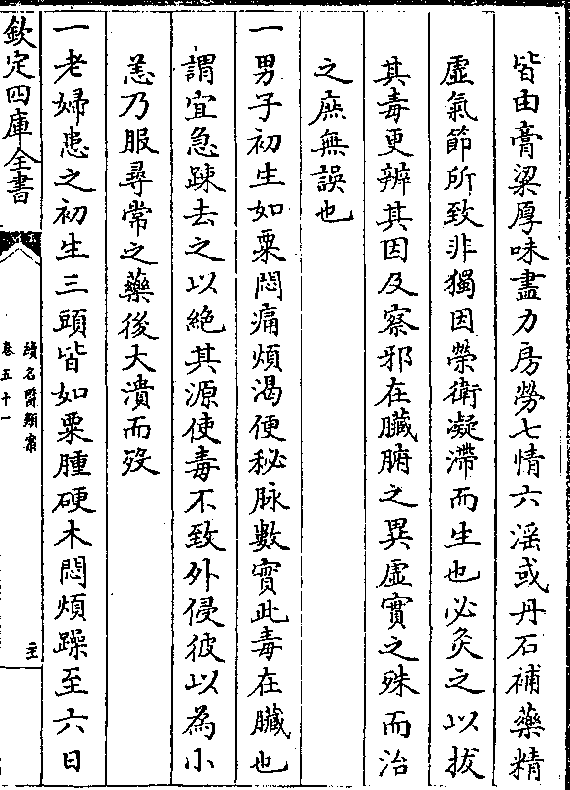 皆由膏粱厚味盡力房勞七情六淫或丹石補藥精
虛氣節所致非獨因榮衛凝滯而生也必灸之以拔
其毒更辨其因及察邪在臟腑之異虛實之殊而治
之庶無誤也
一男子初生如粟悶痛煩渴便秘脉數實此毒在臟也
謂宜急踈去之以絶其源使毒不致外侵彼以為小
恙乃服尋常之藥後大潰而歿
一老婦患之初生三頭皆如粟腫硬木悶煩躁至六日
欽定四庫全書
續名醫類案
卷五十一